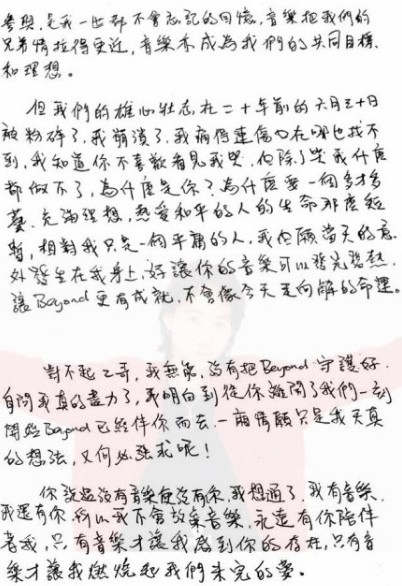 參與,是我一生都不會忘記的回憶,音樂把我們的
兄弟情拉得更近,音樂亦成為我們的共同目標
和理想。
但我們的雄心壯志在二十年前的六月三十日
被粉碎了,我崩潰了,我痛得連傷口在哪也找不
到,我知道你不喜歡看見我哭,但除了哭我什麼
都做不了,為什麼是你?為什麼要一個多才多
藝,充滿理想,熱愛和平的人的生命那麼短
暫,相對我只是一個平庸的人,我也願當天的意
外發生在我身上,好讓你的音樂可以發光發熱,
讓Beyond更有成就,不會像今天走向解的命運。
對不起二哥,我無能,沒有把Beyond守護好,
自問我真的盡力了,我明白到從你離開了我們一刻
開始Beyond已經伴你而去,一廂情願只是我天真
的想法,又何必強求呢!
你說過沒有音樂便沒有你,我想通了,我有音樂,
我還有你,所以我不會放棄音樂,永遠有你陪伴
著我,只有音樂才讓我感到你的存在,只有音
樂才讓我燃燒起我們未完的夢。